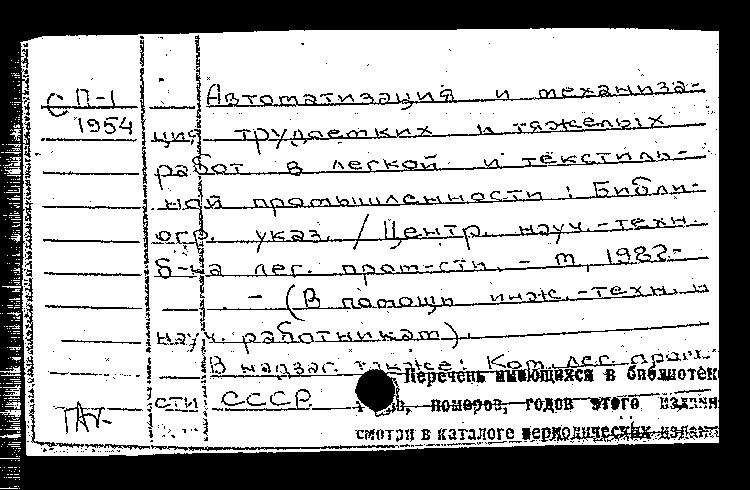 С П-1 Автоматизация и механиза-
1954 ция трудоемких и тяжелых
работ в легкой и текстиль-
ной промышленности : Библи-
огр. указ. / Центр. науч.-техн.
б-ка лег. пром-сти. - М, 1982-
. - (В помощь инж.-техн. и
науч. работникам).
В надзаг. также: Ком. лег. пром-
сти СССР
Перечень имеющихся в библиотек
номеров, годов этого издани
смотри в каталоге периодических издани